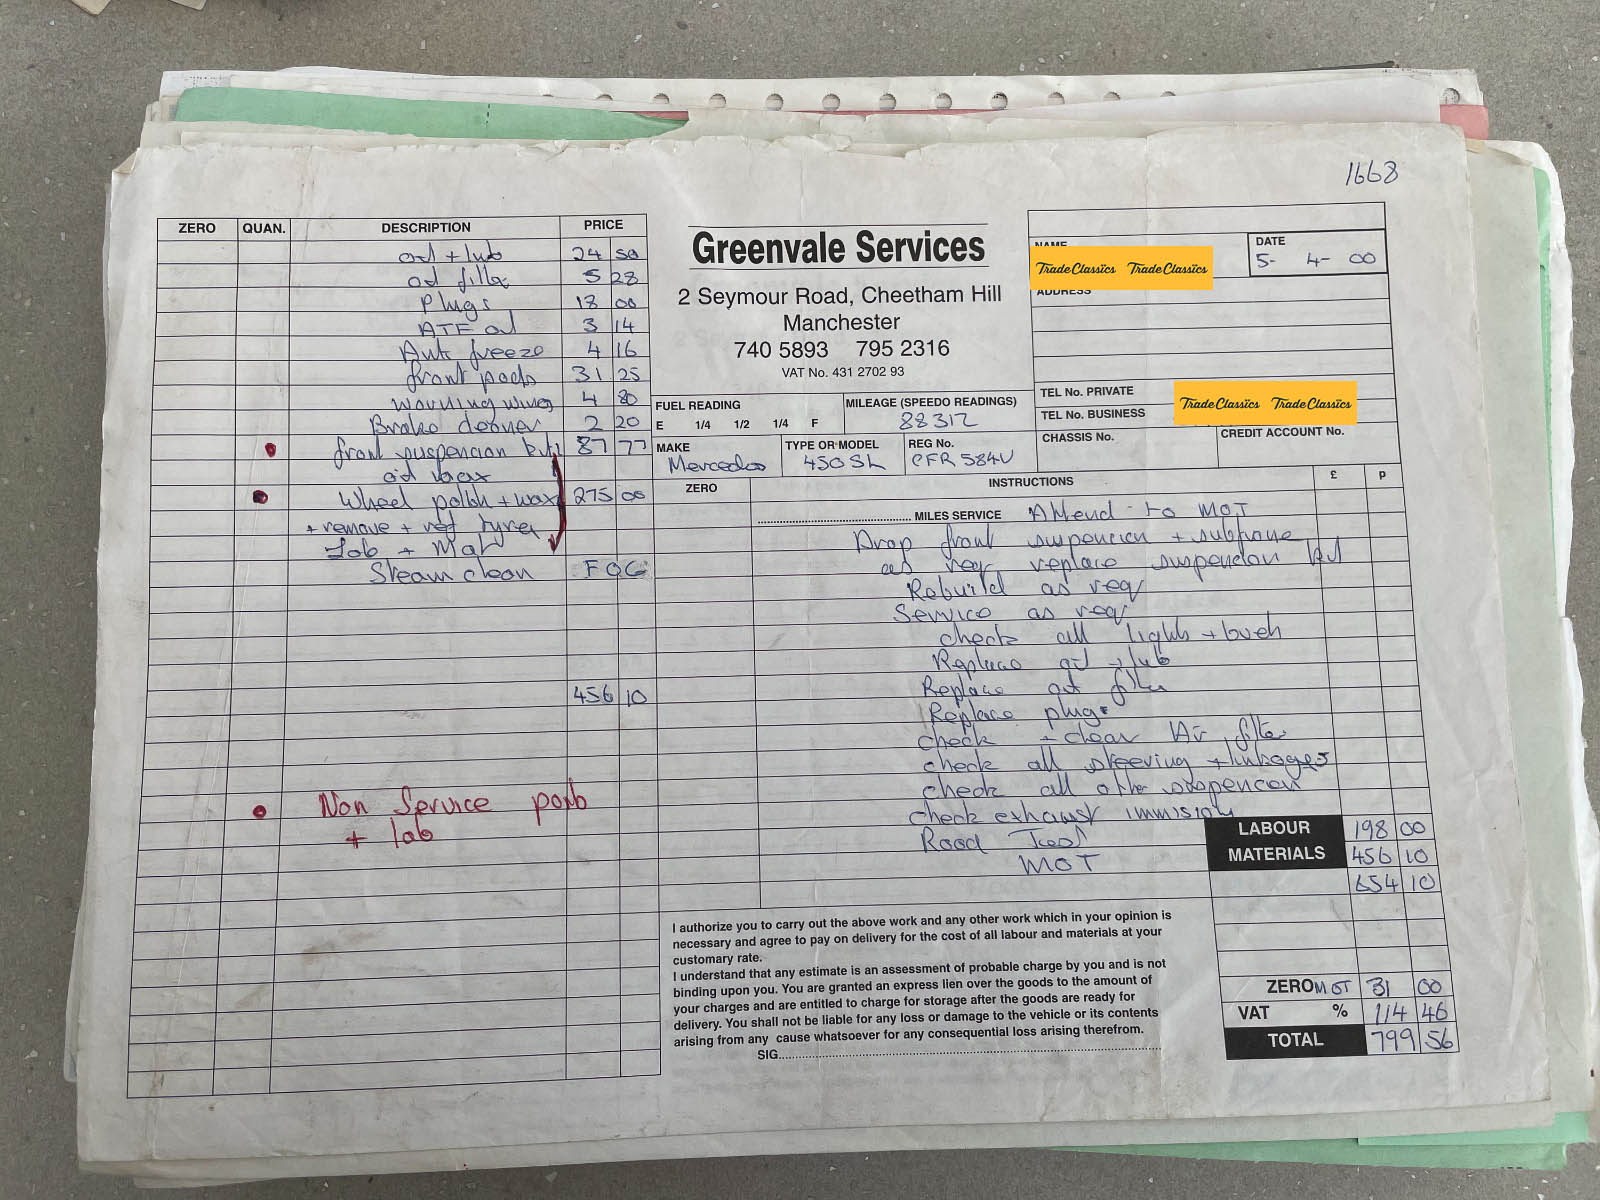 1668
ZERO QUAN. DESCRIPTION PRICE
oil + lub 24 50
oil filter 5 28
Plugs 18 00
ATF oil 3 14
Anti freeze 4 16
front pads 31 25
warning wires 4 80
Brake cleaner 2 20
front suspension kit 87 77
Wheel polish + wax 275 00
+ remove + ref tyres
Lab + Mat
Steam clean F O C
456 10
Non Service parts
+ lab
Greenvale Services
2 Seymour Road, Cheetham Hill
Manchester
740 5893 795 2316
VAT No. 431 2702 93
NAME
TradeClassics TradeClassics
DATE
5- 4- 00
ADDRESS
TEL No. PRIVATE
TEL No. BUSINESS
TradeClassics TradeClassics
FUEL READING
E 1/4 1/2 1/4 F
MILEAGE (SPEEDO READINGS)
88312
CHASSIS No.
CREDIT ACCOUNT No.
MAKE
Mercedes
TYPE OR MODEL
450 SL
REG No.
CFR 584V
ZERO INSTRUCTIONS £ P
MILES SERVICE Attend to MOT
Drop front suspension + subframe
as req replace suspension kit
Rebuild as req
Service as req
check all lights +
Replace oil + lub
Replace oil filter
Replace plugs
check + clean Air filter
check all steering + linkages
check all other suspension
check exhaust immision
Road Test
MOT
LABOUR 198 00
MATERIALS 456 10
654 10
ZERO MOT 31 00
VAT % 114 46
TOTAL 799 56
I authorize you to carry out the above work and any other work which in your opinion is
necessary and agree to pay on delivery for the cost of all labour and materials at your
customary rate.
I understand that any estimate is an assessment of probable charge by you and is not
binding upon you. You are granted an express lien over the goods to the amount of
your charges and are entitled to charge for storage after the goods are ready for
delivery. You shall not be liable for any loss or damage to the vehicle or its contents
arising from any cause whatsoever for any consequential loss arising therefrom.
SIG.